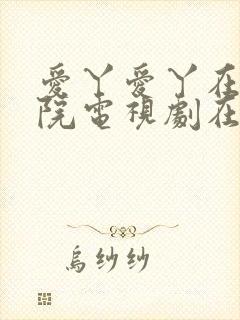 愛丫愛丫在
院電視劇在
烏紗紗